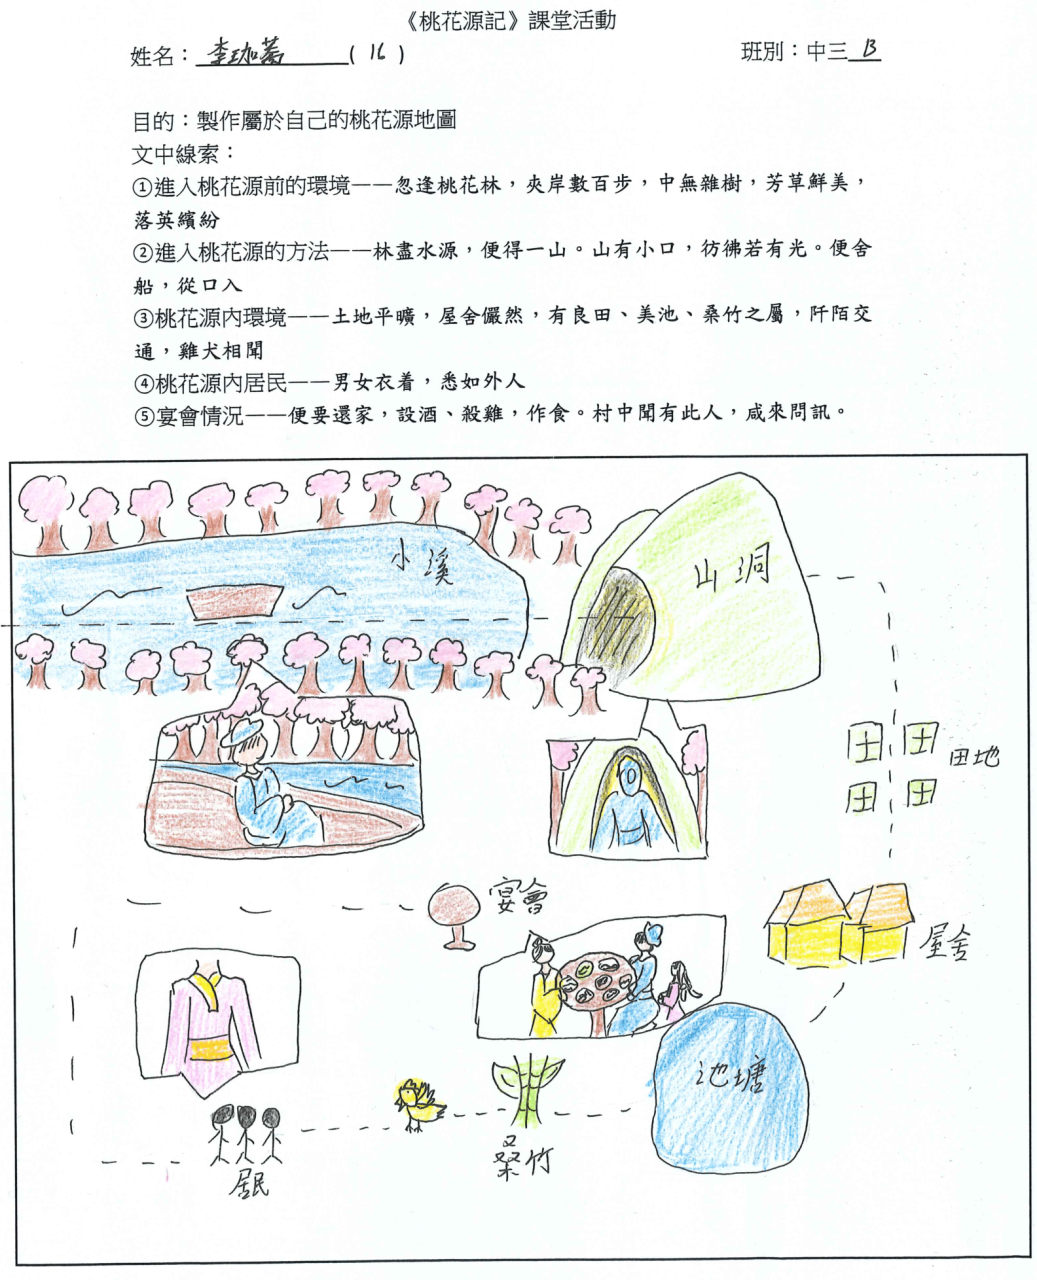 《桃花源記》課堂活動
姓名：李珈蕎(16) 班別：中三B
目的：製作屬於自己的桃花源地圖
文中線索：
①進入桃花源前的環境——忽逢桃花林，夾岸數百步，中無雜樹，芳草鮮美，
落英繽紛
②進入桃花源的方法——林盡水源，便得一山。山有小口，彷彿若有光。便舍
船，從口入
③桃花源內環境——土地平曠，屋舍儼然，有良田、美池、桑竹之屬，阡陌交
通，雞犬相聞
④桃花源內居民——男女衣着，悉如外人
⑤宴會情況——便要還家，設酒、殺雞，作食。村中聞有此人，咸來問訊。
小溪
山洞
田地
宴會
屋舍
池塘
桑竹
居民